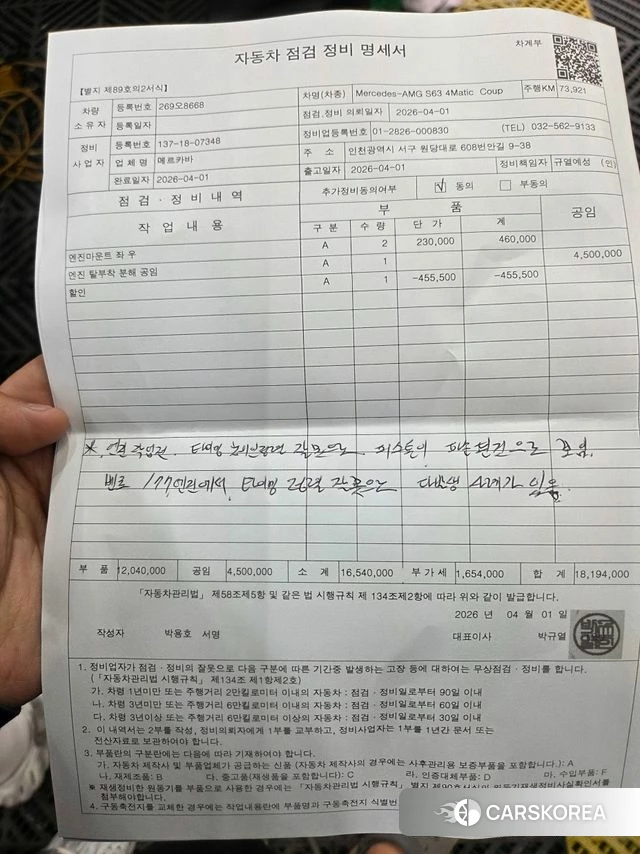 자동차 점검 정비 명세서
차계부
【별지 제89호의2서식】
차량 소유자
등록번호 269오8668
등록일자
차명(차종) Mercedes-AMG S63 4Matic Coup 주행KM 73,921
점검.정비 의뢰일자 2026-04-01
정비 사업자
등록번호 137-18-07348
업체명 메르카바
완료일자 2026-04-01
정비업등록번호 01-2826-000830 (TEL) 032-562-9133
주 소 인천광역시 서구 원당대로 608번안길 9-38
출고일자 2026-04-01 정비책임자 규열예성 (인)
점검 · 정비내역
추가정비동의여부 √ 동의 부동의
작업내용 부 품 공임
구분 수량 단가 계
엔진마운트 좌 우 A 2 230,000 460,000
엔진 탈부착 분해 공임 A 1 4,500,000
할인 A 1 -455,500 -455,500
부 품 12,040,000 공임 4,500,000 소 계 16,540,000 부가세 1,654,000 합 계 18,194,000
「자동차관리법」 제58조제5항 및 같은 법 시행규칙 제 134조제2항에 따라 위와 같이 발급합니다.
2026 년 04 월 01 일
작성자 박용호 서명 대표이사 박규열
1. 정비업자가 점검 · 정비의 잘못으로 다음 구분에 따른 기간중 발생하는 고장 등에 대하여는 무상점검 · 정비를 합니다.
(「자동차관리법 시행규칙」 제134조 제1항제2호)
가. 차령 1년미만 또는 주행거리 2만킬로미터 이내의 자동차 : 점검 · 정비일로부터 90일 이내
나. 차령 3년미만 또는 주행거리 6만킬로미터 이내의 자동차 : 점검 · 정비일로부터 60일 이내
다. 차령 3년이상 또는 주행거리 6만킬로미터 이상의 자동차 : 점검 · 정비일로부터 30일 이내
2. 이 내역서는 2부를 작성, 정비의뢰자에게 1부를 교부하고, 정비사업자는 1부를 1년간 문서 또는
전산자료로 보관하여야 합니다.
3. 부품란의 구분란에는 다음에 따라 기재하여야 합니다.
가. 자동차 제작사 및 부품업체가 공급하는 신품 (자동차 제작사의 경우에는 사후관리용 보증부품을 포함합니다.) : A
나. 재제조품 : B 다. 중고품(재생품을 포함합니다) : C 라. 인증대체부품 : D 마. 수입부품 : F
※ 재생정비한 원동기를 부품으로 사용한 경우에는 「자동차관리법 시행규칙」 별지
첨부해야합니다.
4. 구동축전지를 교체한 경우에는 작업내용란에 부품명과 구동축전지 식별번
CARSKOREA